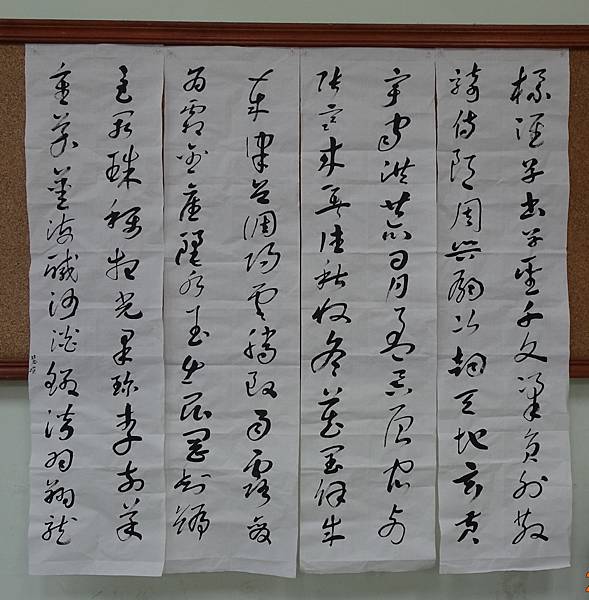 標準草書草聖千文梁員外散
騎侍郎周興嗣次韻天地玄黃
宇宙洪荒日月盈昃辰宿列
張寒來暑往秋收冬藏閏餘成
歲律呂調陽雲騰致雨露結
為霜金生麗水玉出崑岡劍號
巨闕珠稱夜光果珍李柰菜
重芥薑海鹹河淡鱗潛羽翔龍